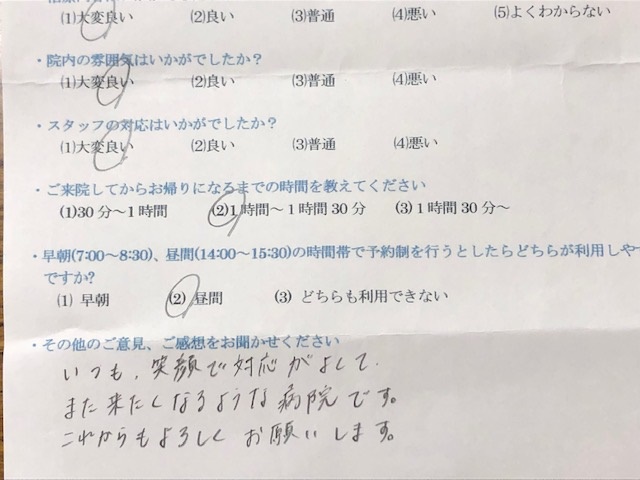 (1)大変良い (2)良い (3)普通 (4)悪い (5)よくわからない
・院内の雰囲気はいかがでしたか？
(1)大変良い (2)良い (3)普通 (4)悪い
・スタッフの対応はいかがでしたか？
(1)大変良い (2)良い (3)普通 (4)悪い
・ご来院してからお帰りになるまでの時間を教えてください
(1)30分～1時間 (2)1時間～1時間30分 (3)1時間30分～
・早朝(7:00～8:30)、昼間(14:00～15:30)の時間帯で予約制を行うとしたらどちらが利用しや
ですか?
(1) 早朝 (2) 昼間 (3) どちらも利用できない
・その他のご意見、ご感想をお聞かせください
いつも、笑顔で対応がよくて
また来たくなるような病院です。
これからもよろしくお願いします。